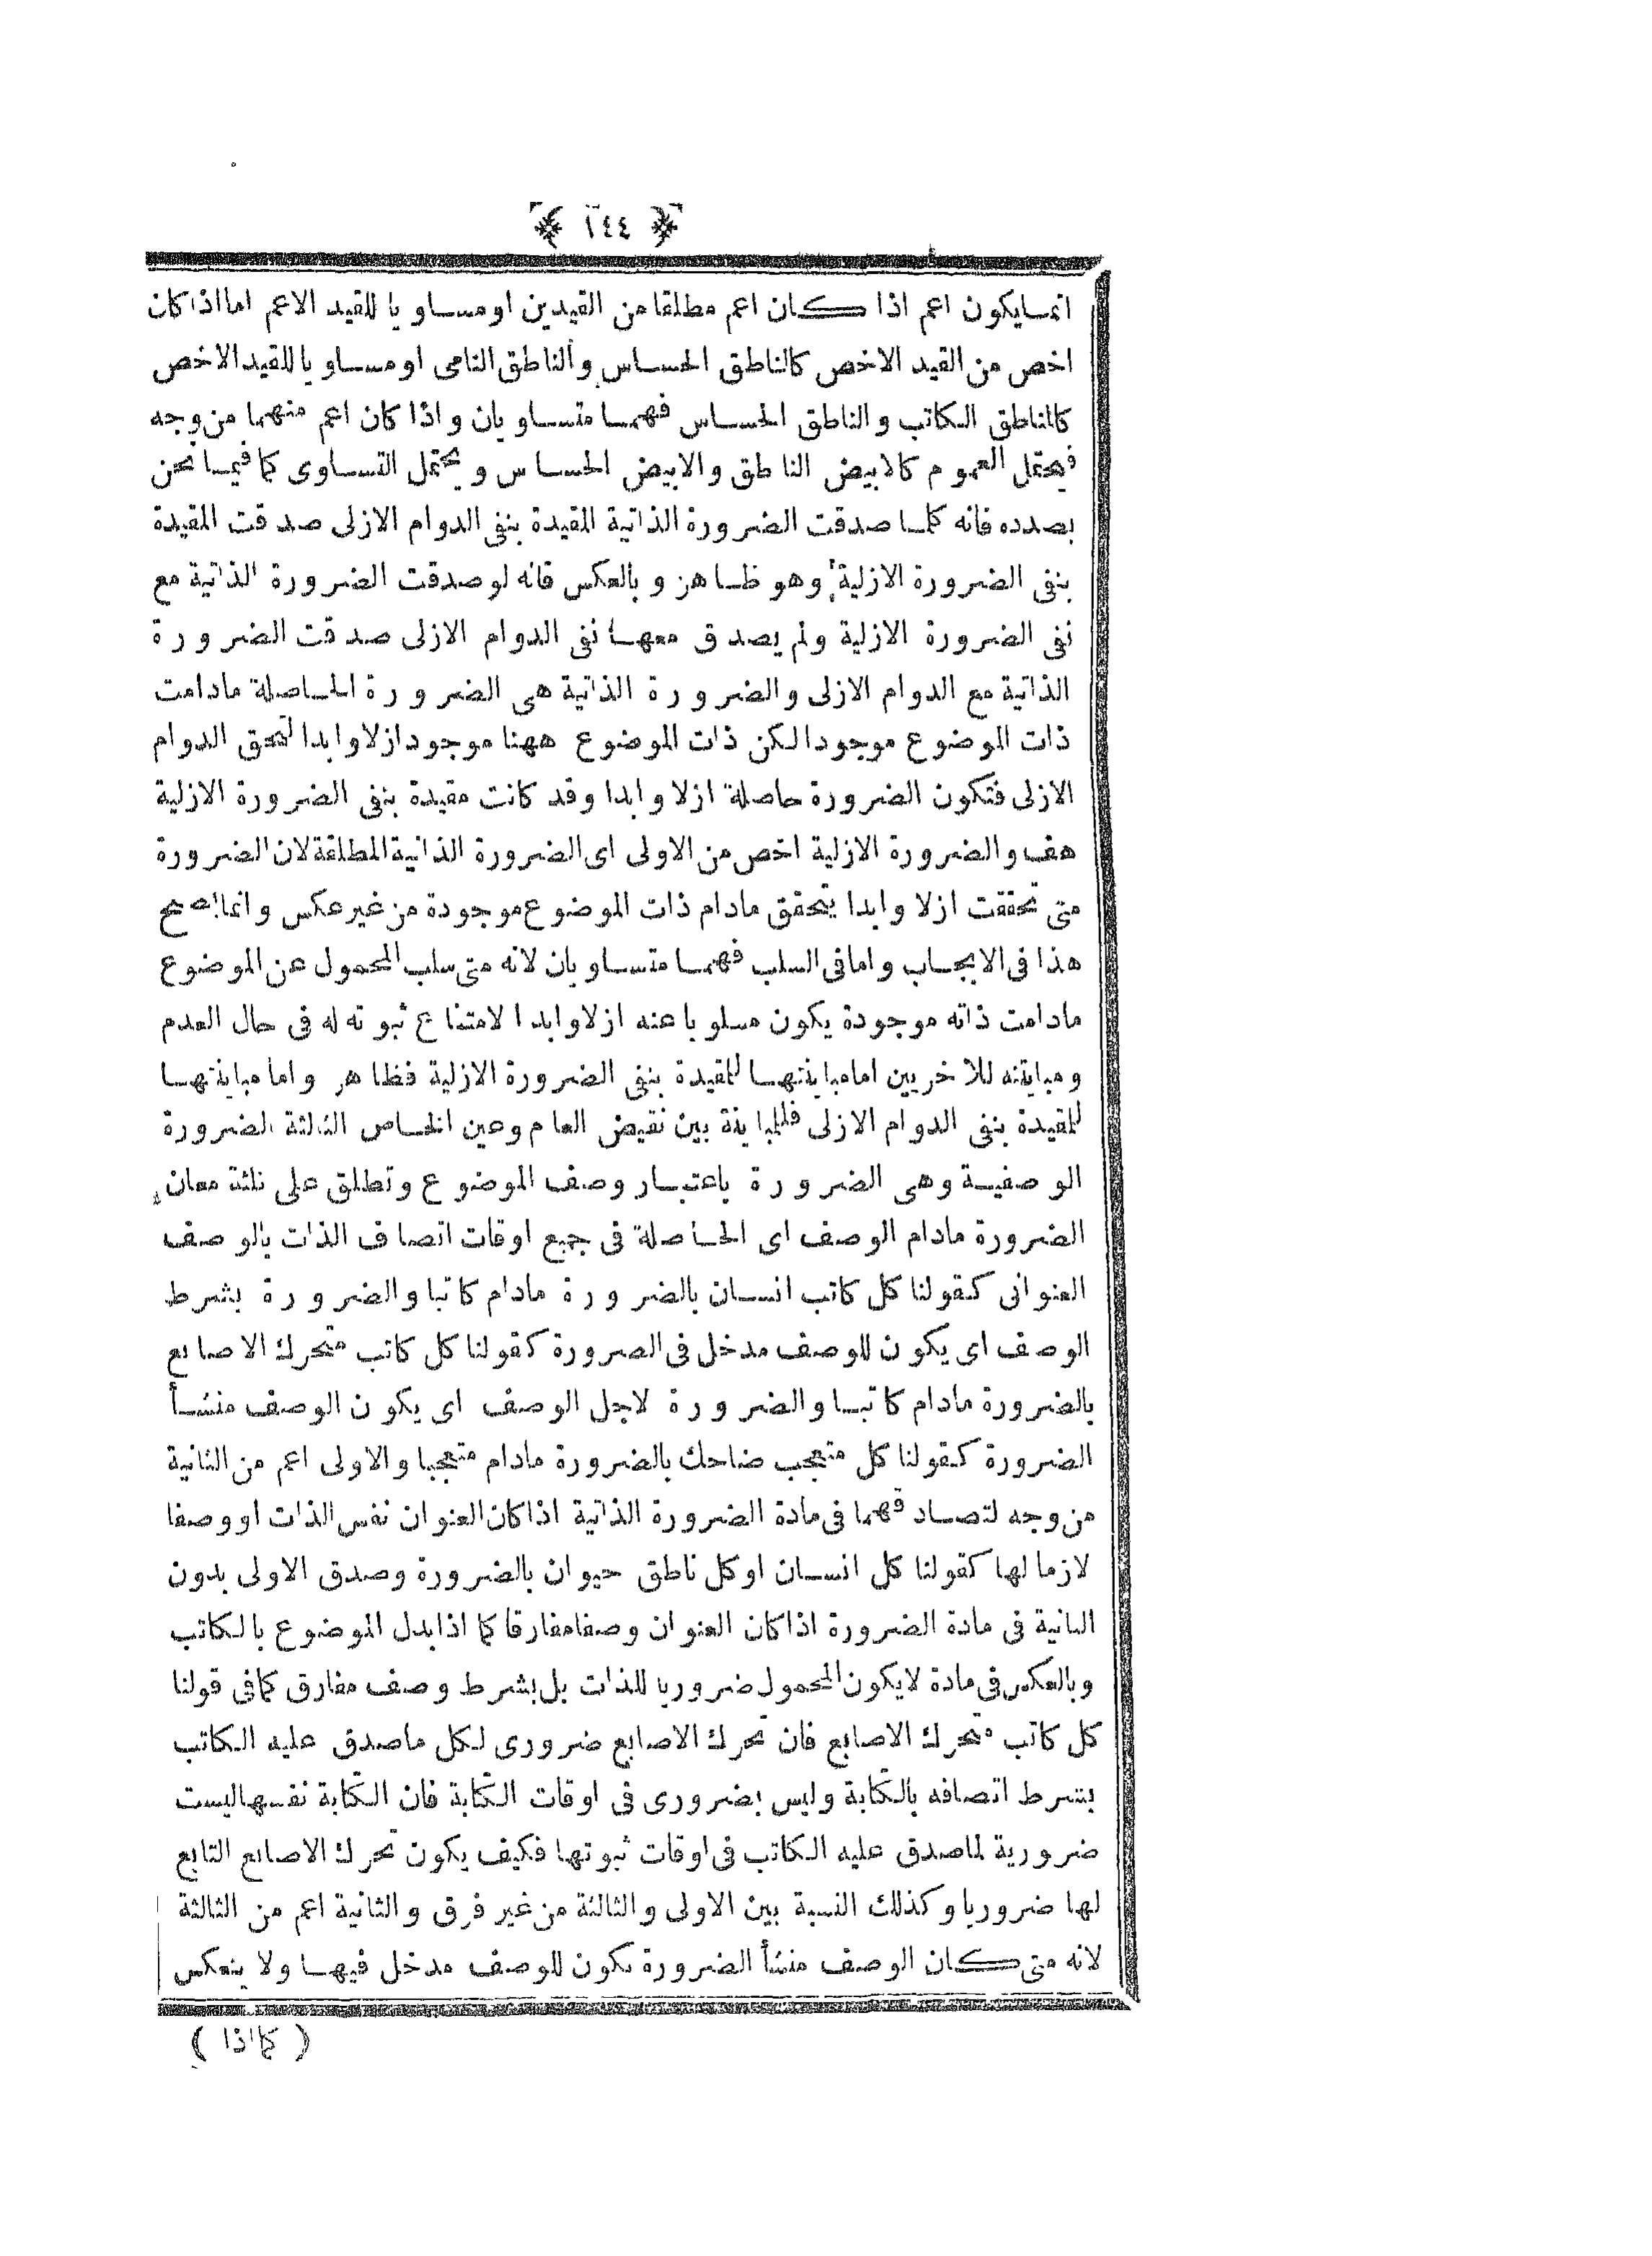 ﴿ ١٤٤ ﴾
انما يكون اعم اذا كان اعم مطلقا من القيدين او مساويا للقيد الاعم اما اذا كان
اخص من القيد الاخص كالناطق الحساس والناطق النامى او مساويا للقيد الاخص
كالناطق الكاتب والناطق الحساس فهما متساويان واذا كان اعم منهما من وجه
فيحتمل العموم كالابيض الناطق والابيض الحساس ويحتمل التساوى كما فيما نحن
بصدده فانه كلما صدقت الضرورة الذاتية المقيدة بنفى الدوام الازلى صدقت المقيدة
بنفى الضرورة الازلية وهو ظاهر وبالعكس فانه لو صدقت الضرورة الذاتية مع
نفى الضرورة الازلية ولم يصدق معها نفى الدوام الازلى صدقت الضرورة
الذاتية مع الدوام الازلى والضرورة الذاتية هى الضرورة الحاصلة مادامت
ذات الموضوع موجودا لكن ذات الموضوع ههنا موجود ازلا وابدا لتحقق الدوام
الازلى فتكون الضرورة حاصلة ازلا وابدا وقد كانت مقيدة بنفى الضرورة الازلية
هف والضرورة الازلية اخص من الاولى اى الضرورة الذاتية المطلقة لان الضرورة
متى تحققت ازلا وابدا يتحقق مادام ذات الموضوع موجودة من غير عكس وانما يصح
هذا فى الايجاب واما فى السلب فهما متساويان لانه متى سلب المحمول عن الموضوع
مادامت ذاته موجودة يكون مسلوبا عنه ازلا وابدا لامتناع ثبوته له فى حال العدم
ومباينته للاخريين اما مباينتها للمقيدة بنفى الضرورة الازلية فظاهر واما مباينتها
للمقيدة بنفى الدوام الازلى فللمباينة بين نقيض العام وعين الخاص الثالثة الضرورة
الوصفية وهى الضرورة باعتبار وصف الموضوع وتطلق على ثلثة معان
الضرورة مادام الوصف اى الحاصلة فى جميع اوقات اتصاف الذات بالوصف
العنوانى كقولنا كل كاتب انسان بالضرورة مادام كاتبا والضرورة بشرط
الوصف اى يكون للوصف مدخل فى الضرورة كقولنا كل كاتب متحرك الاصابع
بالضرورة مادام كاتبا والضرورة لاجل الوصف اى يكون الوصف منشأ
الضرورة كقولنا كل متعجب ضاحك بالضرورة مادام متعجبا والاولى اعم من الثانية
من وجه لتصادقهما فى مادة الضرورة الذاتية اذا كان العنوان نفس الذات او وصفا
لازما لها كقولنا كل انسان او كل ناطق حيوان بالضرورة وصدق الاولى بدون
الثانية فى مادة الضرورة اذا كان العنوان وصفا مفارقا كما اذا بدل الموضوع بالكاتب
وبالعكس فى مادة لا يكون المحمول ضروريا للذات بل بشرط وصف مفارق كما فى قولنا
كل كاتب متحرك الاصابع فان تحرك الاصابع ضرورى لكل ما صدق عليه الكاتب
بشرط اتصافه بالكتابة وليس بضرورى فى اوقات الكتابة فان الكتابة نفسها ليست
ضرورية لما صدق عليه الكاتب فى اوقات ثبوتها فكيف يكون تحرك الاصابع التابع
لها ضروريا وكذلك النسبة بين الاولى والثالثة من غير فرق والثانية اعم من الثالثة
لانه متى كان الوصف منشأ الضرورة يكون للوصف مدخل فيها ولا ينعكس
( كما اذا )